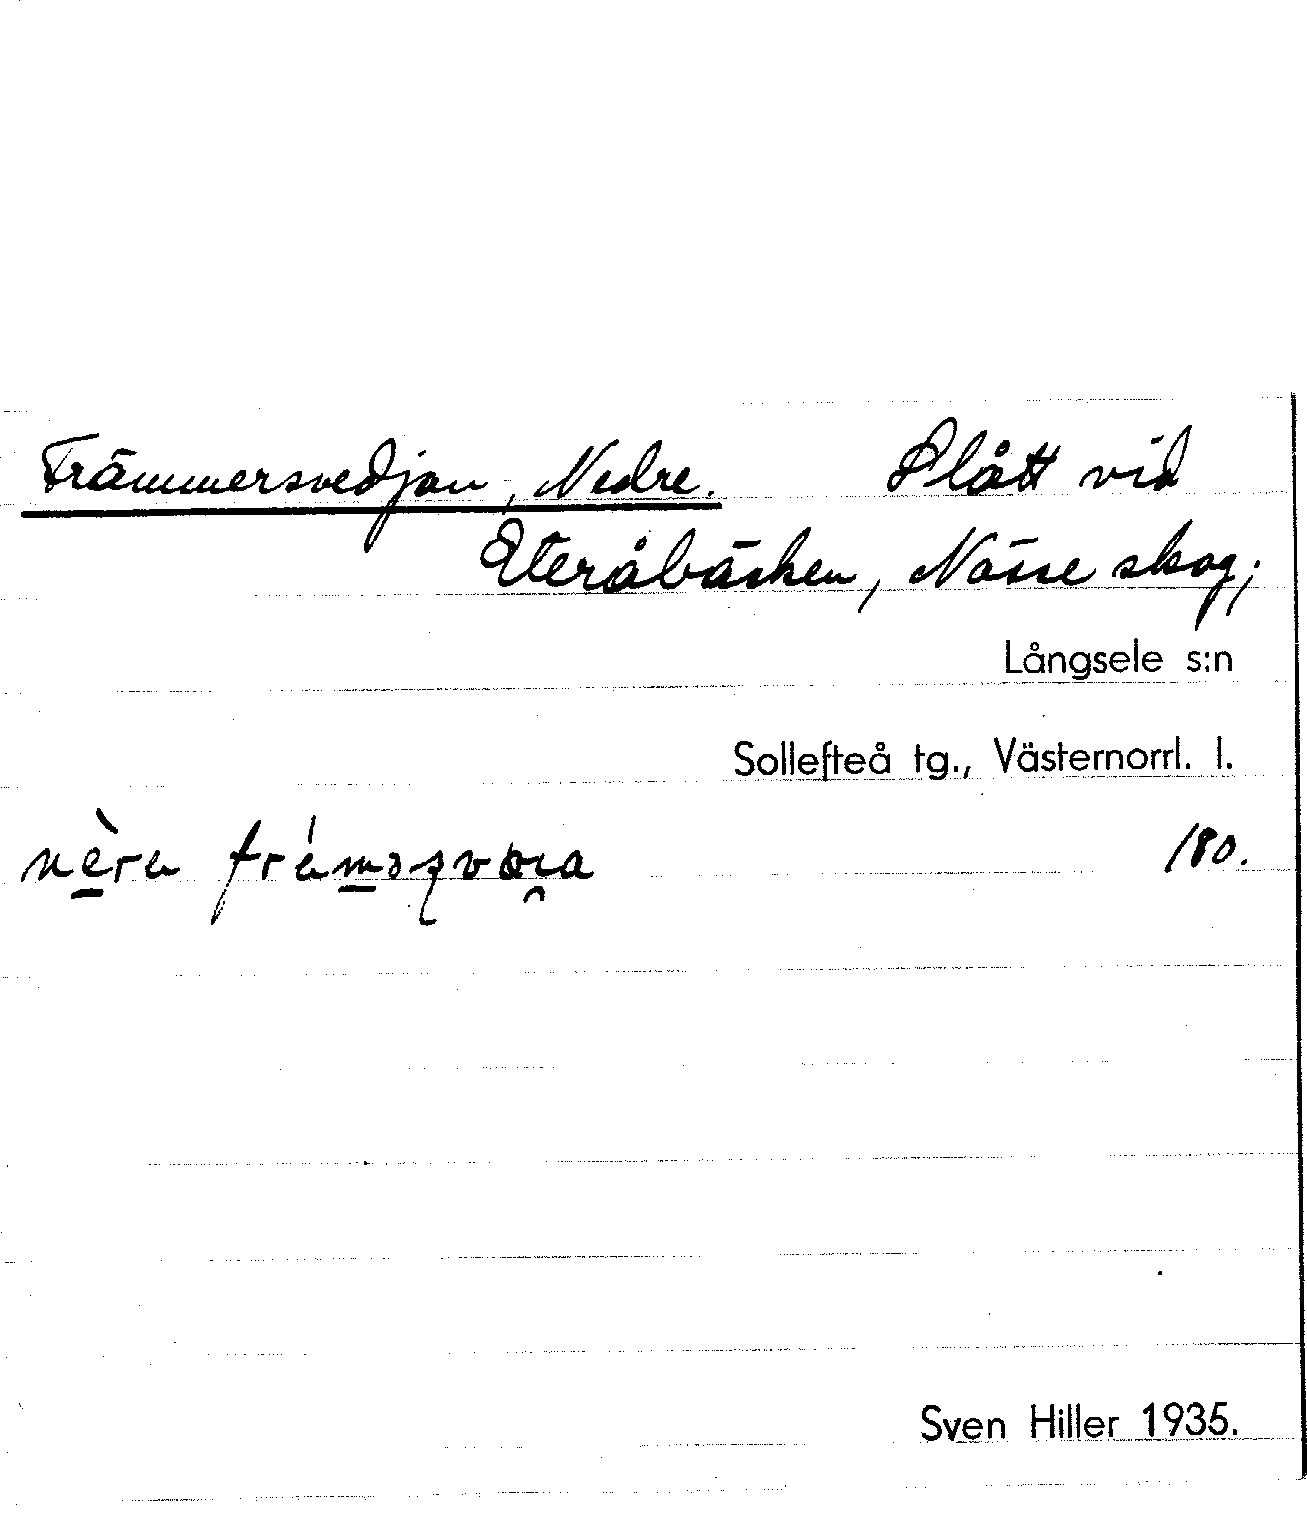 Främmersvedjan, Nedre. Slått vid
Eteråbäcken, Nässe skog;
Långsele s:n
Sollefteå tg., Västernorrl. l.
180.
Sven Hiller 1935.